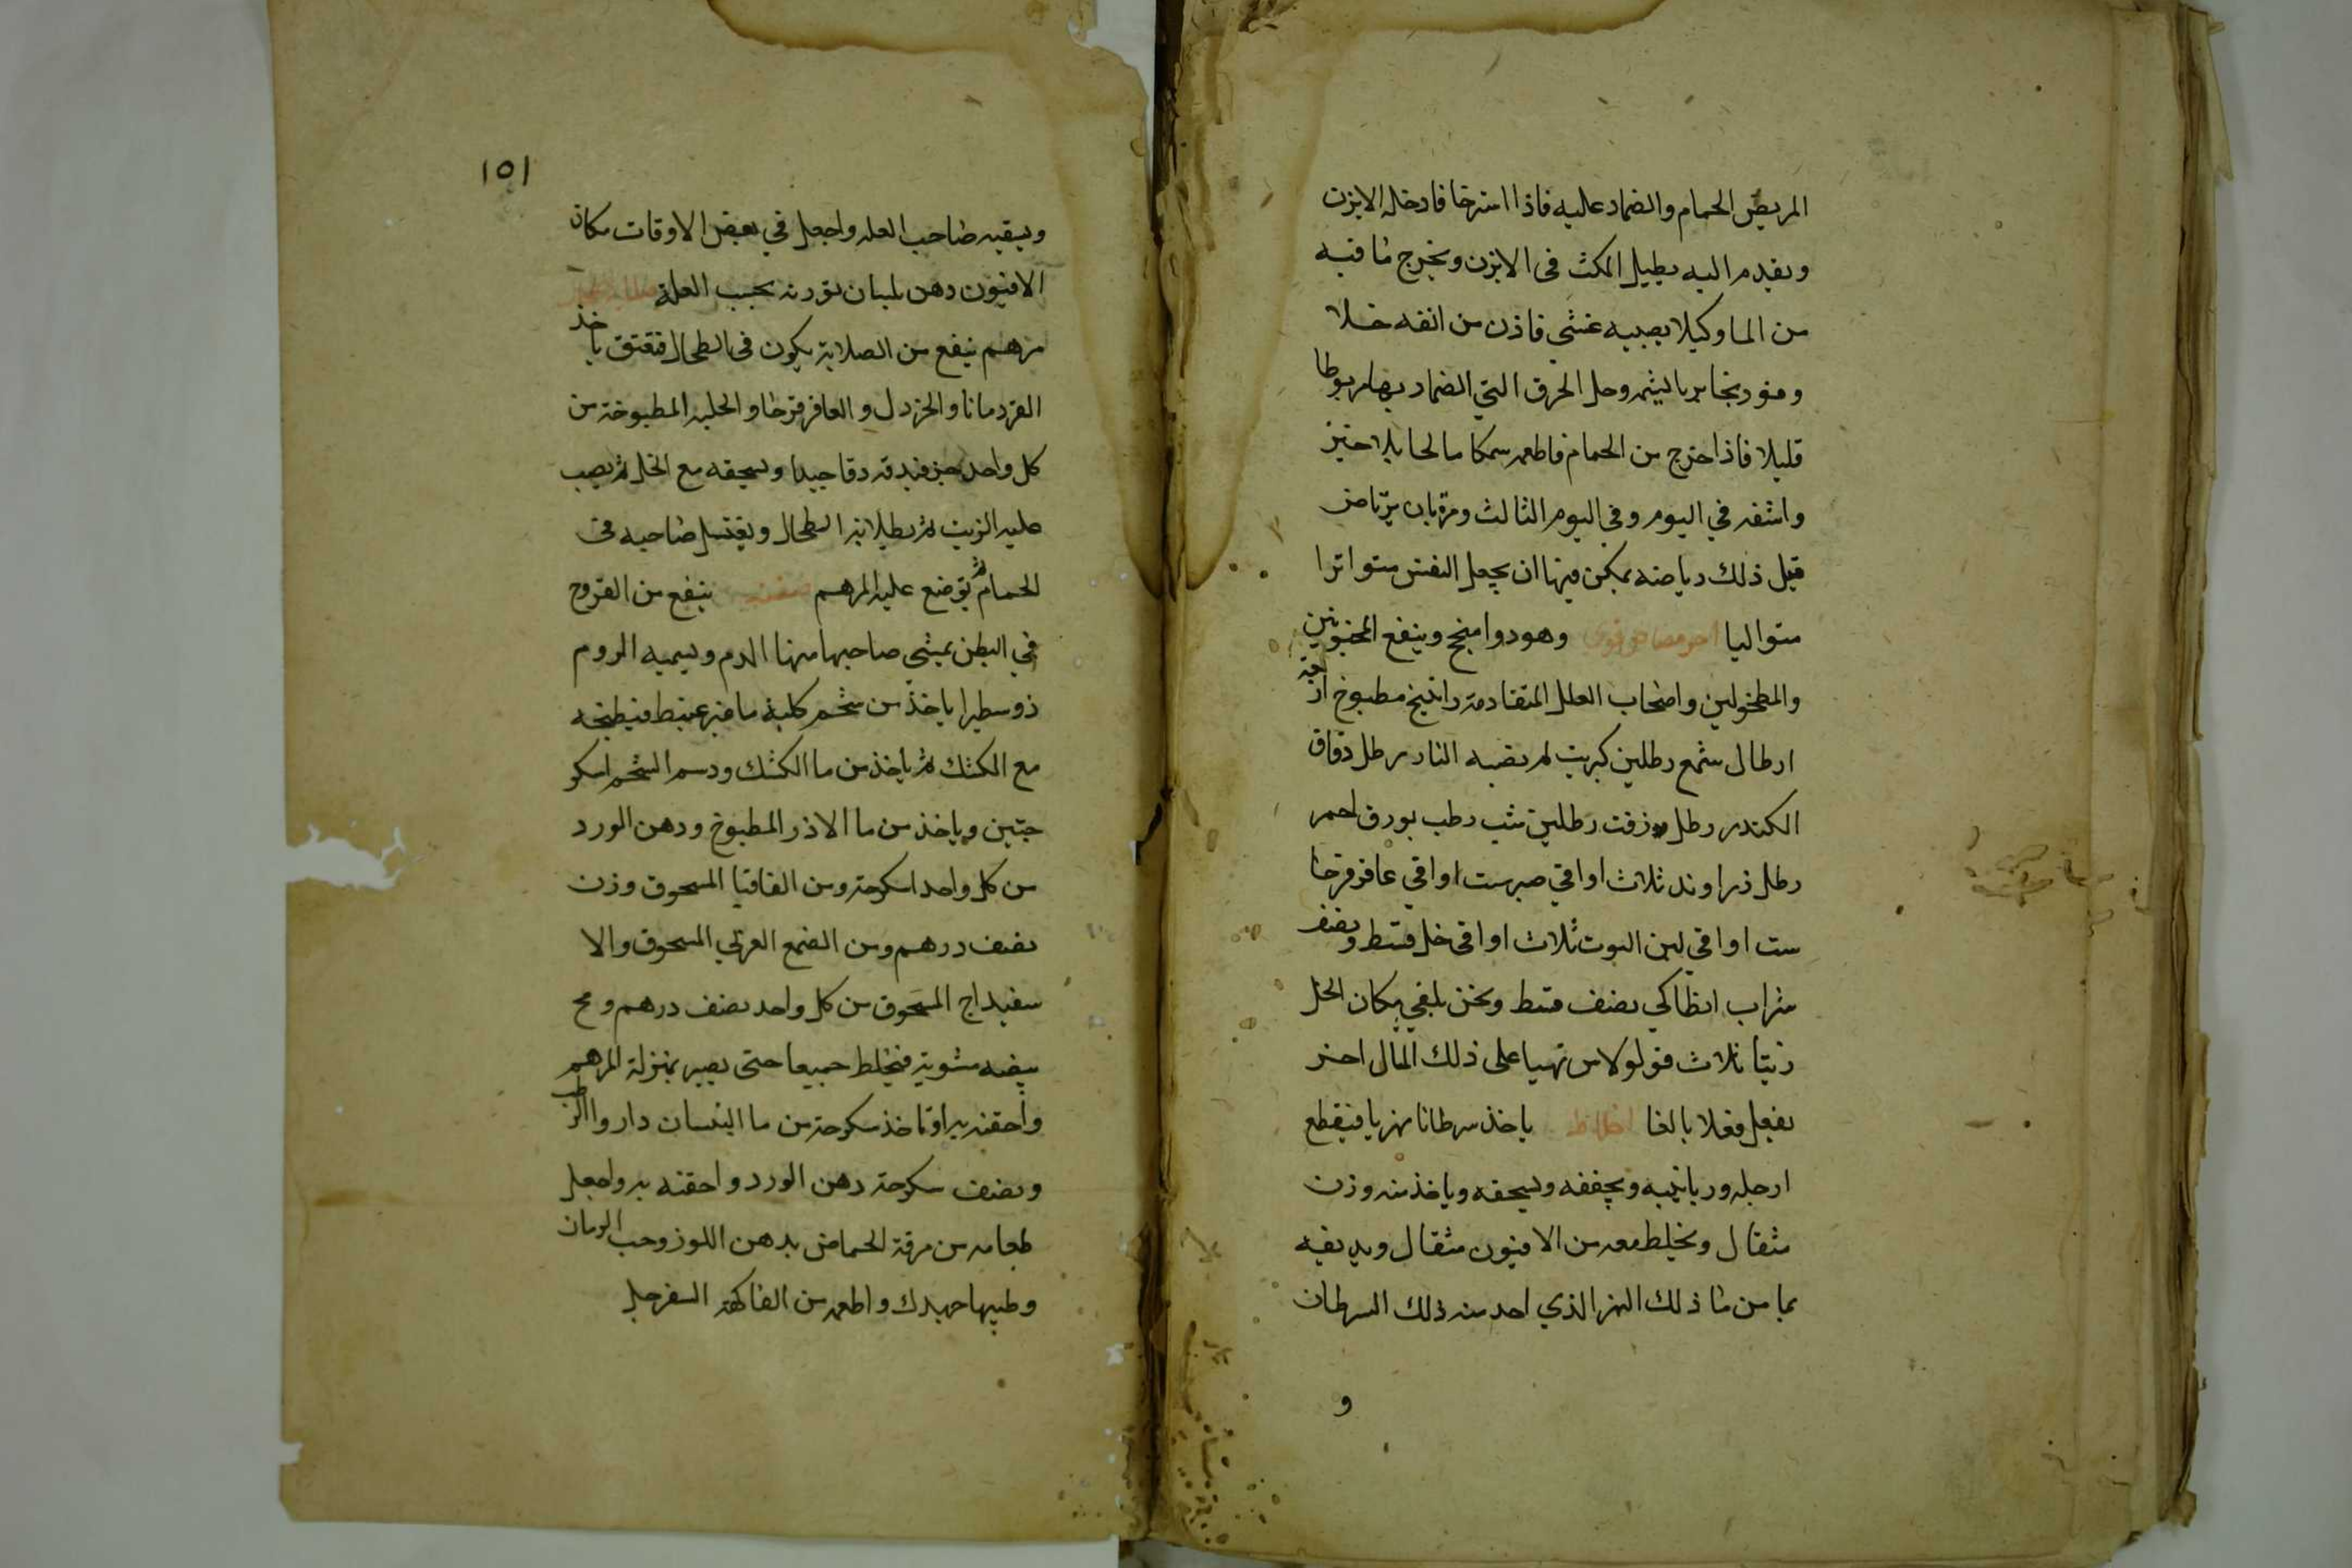 المريض الحمام والضماد عليه فاذا استرخا فادخله الابزن
ويقدم اليه بطيل المكث فى الابزن ويخرج ما فيه
من الما وكيلا يصيبه غشي فاذن من انفه خلا
وفودنجا بريا ليشمه وحل الخرق التي الضماد بها مربوطا
قليلا فاذا خرج من الحمام فاطعمه سمكا مالحا بلا خبز
واشفه في اليوم وفي اليوم الثالث ومره بان يرتاض
قبل ذلك رياضه يمكن فيها ان يجعل النفس متواترا
متواليا وهو دوا منجح وينفع المجنونين
والمطحولين واصحاب العلل المتقادمة راتينج مطبوخ اربعة
ارطال شمع رطلين كبريت لم تصبه النار رطل دقاق
الكندر رطل زفت رطلين شب رطب بورق احمر
رطل زراوند ثلاث اواقي صبر ست اواقي عاقر قرحا
ست اواقي لبن التوت ثلاث اواقى خل قسط ونصف
شراب انطاكي نصف قسط ونحن نلقي مكان الخل
زيتا ثلاث قولولاس تهيا على ذلك المثال اخر
يفعل فعلا بالغا اخلاط ياخذ سرطانا نهريا فيقطع
ارجله وزبانيه ويجففه ويسحقه وياخذ منه وزن
مثقال ويخلط معه من الافيون مثقال ويديفه
بما من ما ذلك النهر الذي اخد منه ذلك السرطان
و
١٥١
ويسقيه صاحب العله واجعل في بعض الاوقات مكان
الافيون دهن بلسان بقدر نه بحسب العلة
مرهم ينفع من الصلابة يكون فى الطحال فتعتق ياخذ
القردمانا والخردل والعاقر قرحا والحلبه المطبوخة من
كل واحد جز فيدقه دقا جيدا ويسحقه مع الخل ثم يصب
عليه الزيت ثم يطلا به الطحال ويغتسل صاحبه فى
الحمام ثم يوضع عليه المرهم ينفع من القروح
في البطن يمشي صاحبها منها الدم ويسميه الروم
ذوسطيرا ياخذ من شحم كلية ماعز عبيط فيطبخه
مع الكشك ثم ياخذ من ما الكشك ودسم الشحم اسكر
جتين وياخذ من ما الارز المطبوخ ودهن الورد
من كل واحد اسكرجة ومن القاقيا المسحوق وزن
نصف درهم ومن الصمغ العربي المسحوق والا
سفيداج المسحوق من كل واحد نصف درهم ومح
بيضه مشوية فيخلط جميعا حتى يصير بمنزلة المرهم
واحقنه به او تاخذ سكرجة من ما اللسان داروا الرطب
ونصف سكرجة دهن الورد واحقنه به واجعل
طعامه من مرقة الحماض بدهن اللوز وحب الرمان
وطيبها جهدك واطعمه من الفاكهة السفرجل